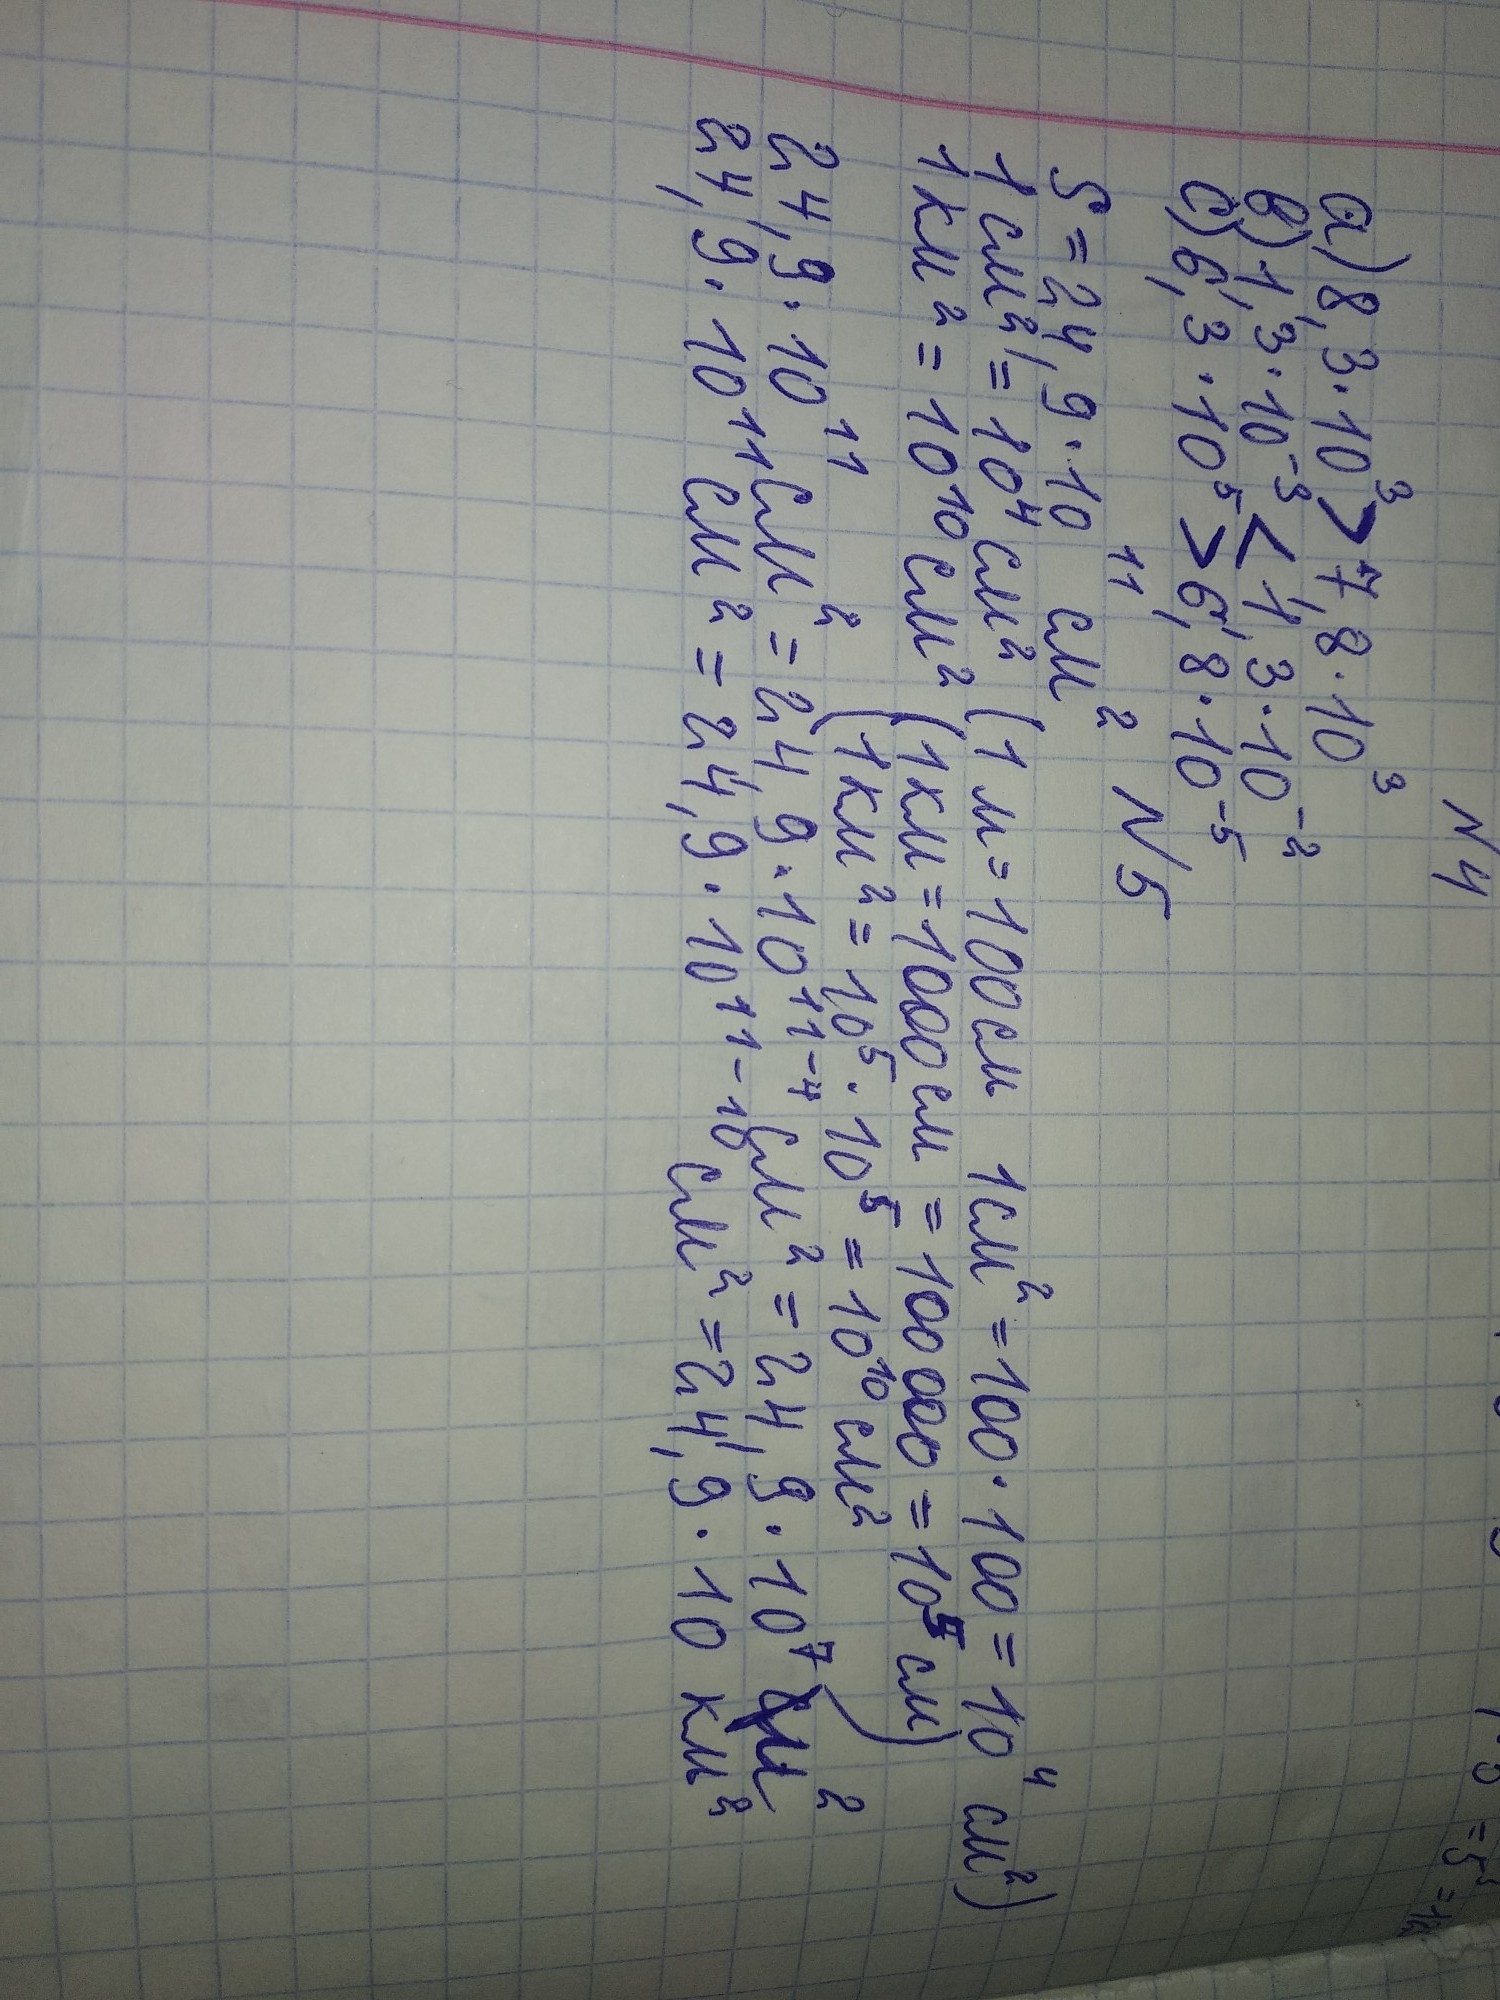 N4
a) 8,3·10³ > 7,8·10³
в) 1,3·10⁻³ < 1,3·10⁻²
c) 6,3·10⁵ > 6,8·10⁻⁵
N5
S = 24,9·10¹¹ см²
1 см² = 10⁴ см² (1 м = 100 см 1см² = 100·100 = 10⁴ см²)
1 км² = 10¹⁰ см² (1км = 1000см = 100 000 = 10⁵ см)
(1 км² = 10⁵·10⁵ = 10¹⁰ см²)
24,9·10¹¹ см² = 24,9·10¹¹⁻⁴ см² = 24,9·10⁷ м²
24,9·10¹¹ см² = 24,9·10¹¹⁻¹⁰ см² = 24,9·10 км²